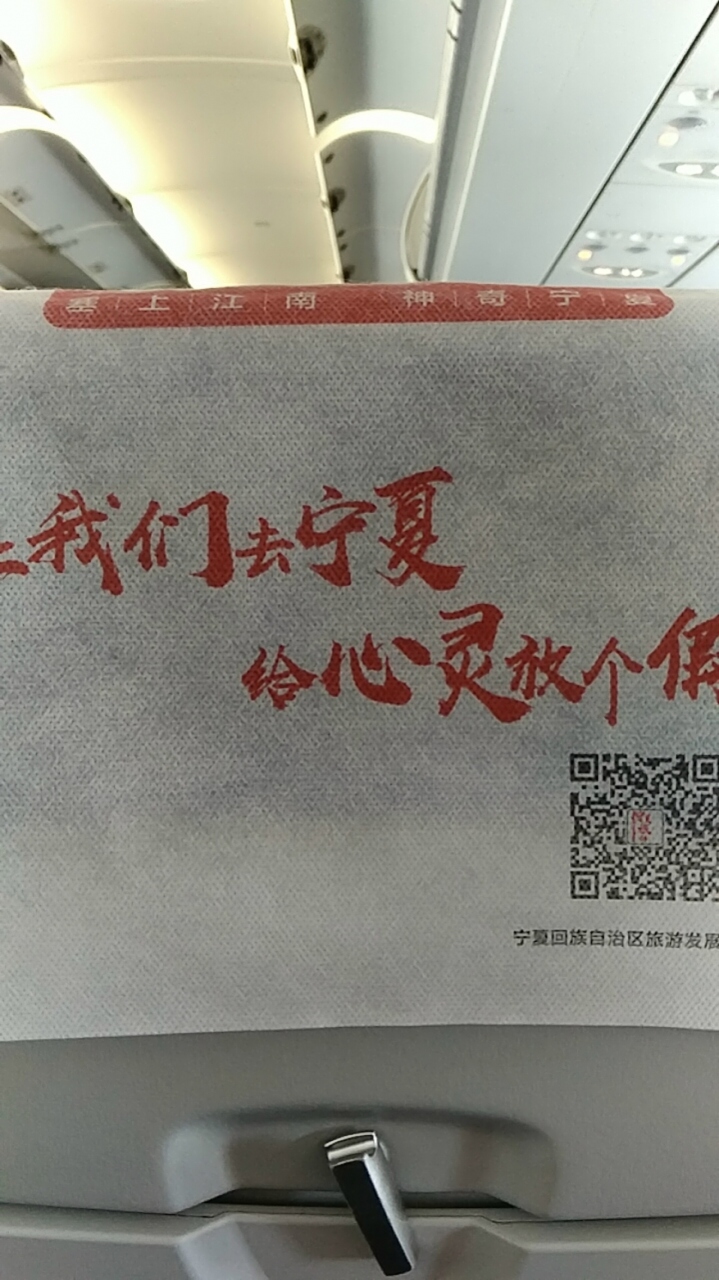 塞上江南 神奇宁夏
我们去宁夏
给心灵放个假
宁夏回族自治区旅游发展